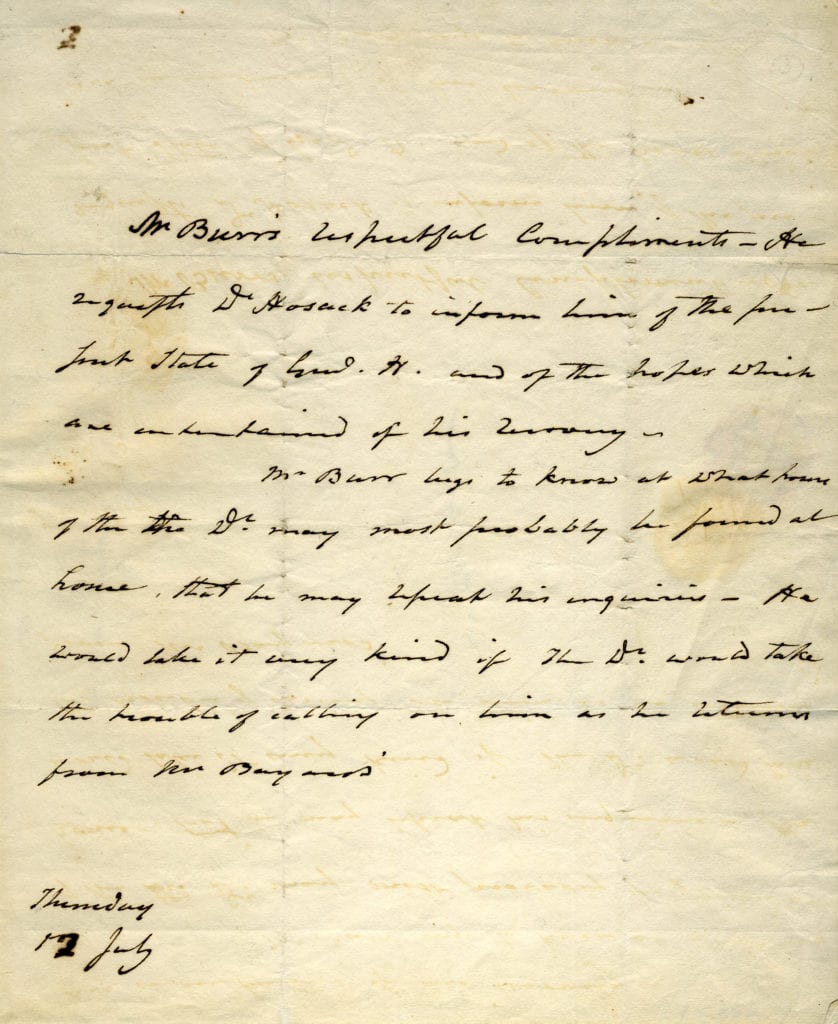 Mr Burr's respectful Compliments – He
requests Dr. Hosack to inform him of the pre–
sent State of Genl. H. and of the hopes which
are entertained of his recovery –
Mr Burr begs to know at what hour
of the the Dr. may most probably be found at
home, that he may repeat his inquiries – He
would take it very kind if the Dr. would take
the trouble of calling on him as he returns
from Mr Bayard's
Thursday
12 July